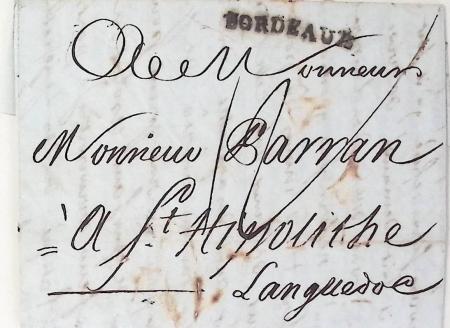 BORDEAUX
A Monsieur
Monsieur Barran
A St. Hipolithe
Languedoc